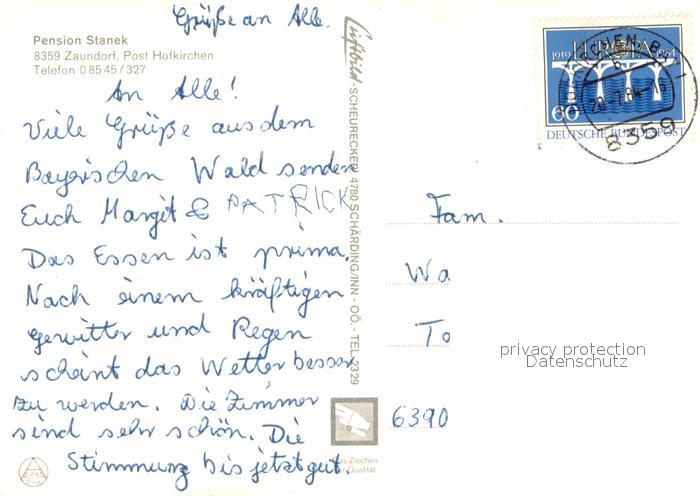 Grüße an Alle.
Pension Stanek
8359 Zaundorf, Post Hofkirchen
Telefon 0 85 45 / 327
An Alle!
Viele Grüße aus dem
Bayrischen Wald senden
Euch Margit & PATRICK
Das Essen ist prima.
Nach einem kräftigen
Gewitter und Regen
scheint das Wetter besser
zu werden. Die Zimmer
sind sehr schön. Die
Stimmung bis jetzt gut.
Luftbild-SCHEURECKER 4780 SCHÄRDING/INN - OÖ. - TEL. 2329
Das Zeichen
der Qualität
1959 EUROPA 1984
60
DEUTSCHE BUNDESPOST
20.-7.84-16
8359
Fam.
Wa
To
6390
privacy protection
Datenschutz